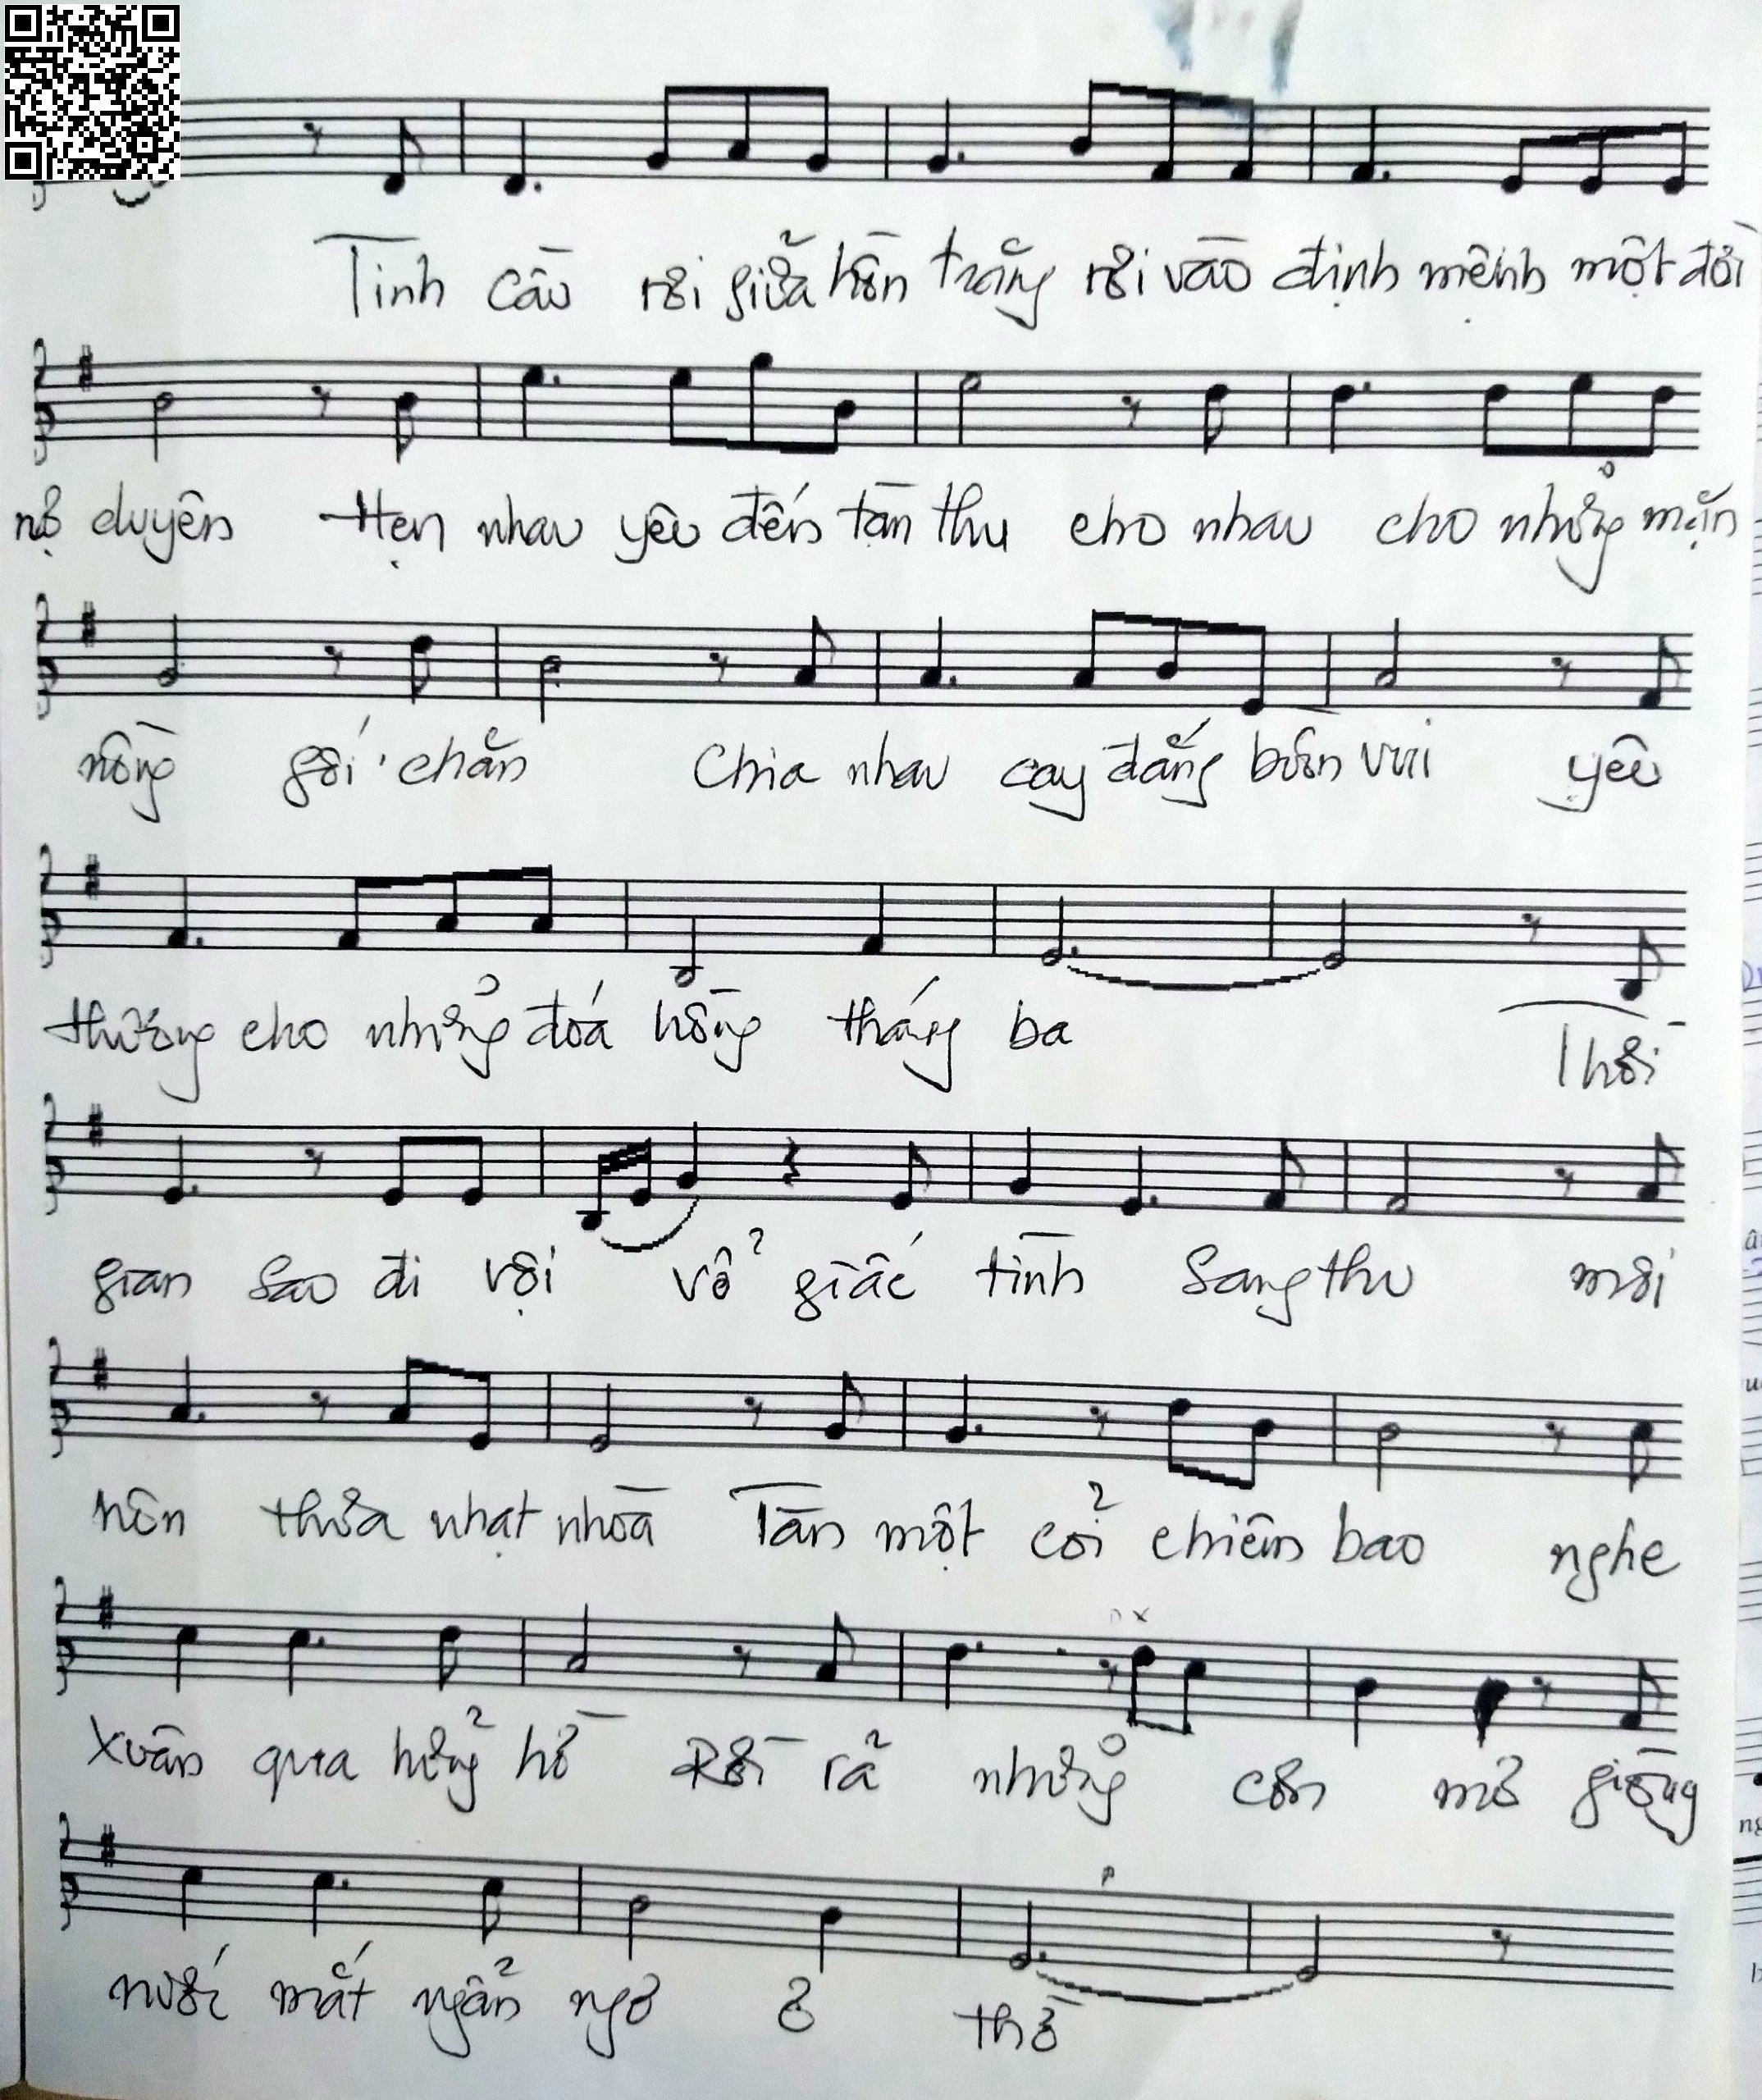 Tình cầu rơi giữa hồn trăng rơi vào định mệnh một đời
nợ duyên Hẹn nhau yêu đến tàn thu cho nhau cho những mặn
nồng gối chăn Chia nhau cay đắng buồn vui yêu
thương cho những đoá hồng tháng ba Thời
gian sao đi vội vỡ giấc tình Sang thu môi
hôn thưa nhạt nhoà Tàn một cõi chiêm bao nghe
Xuân qua hững hờ Rồi rã những cơn mơ giòng
nước mắt ngẩn ngơ ơ thờ